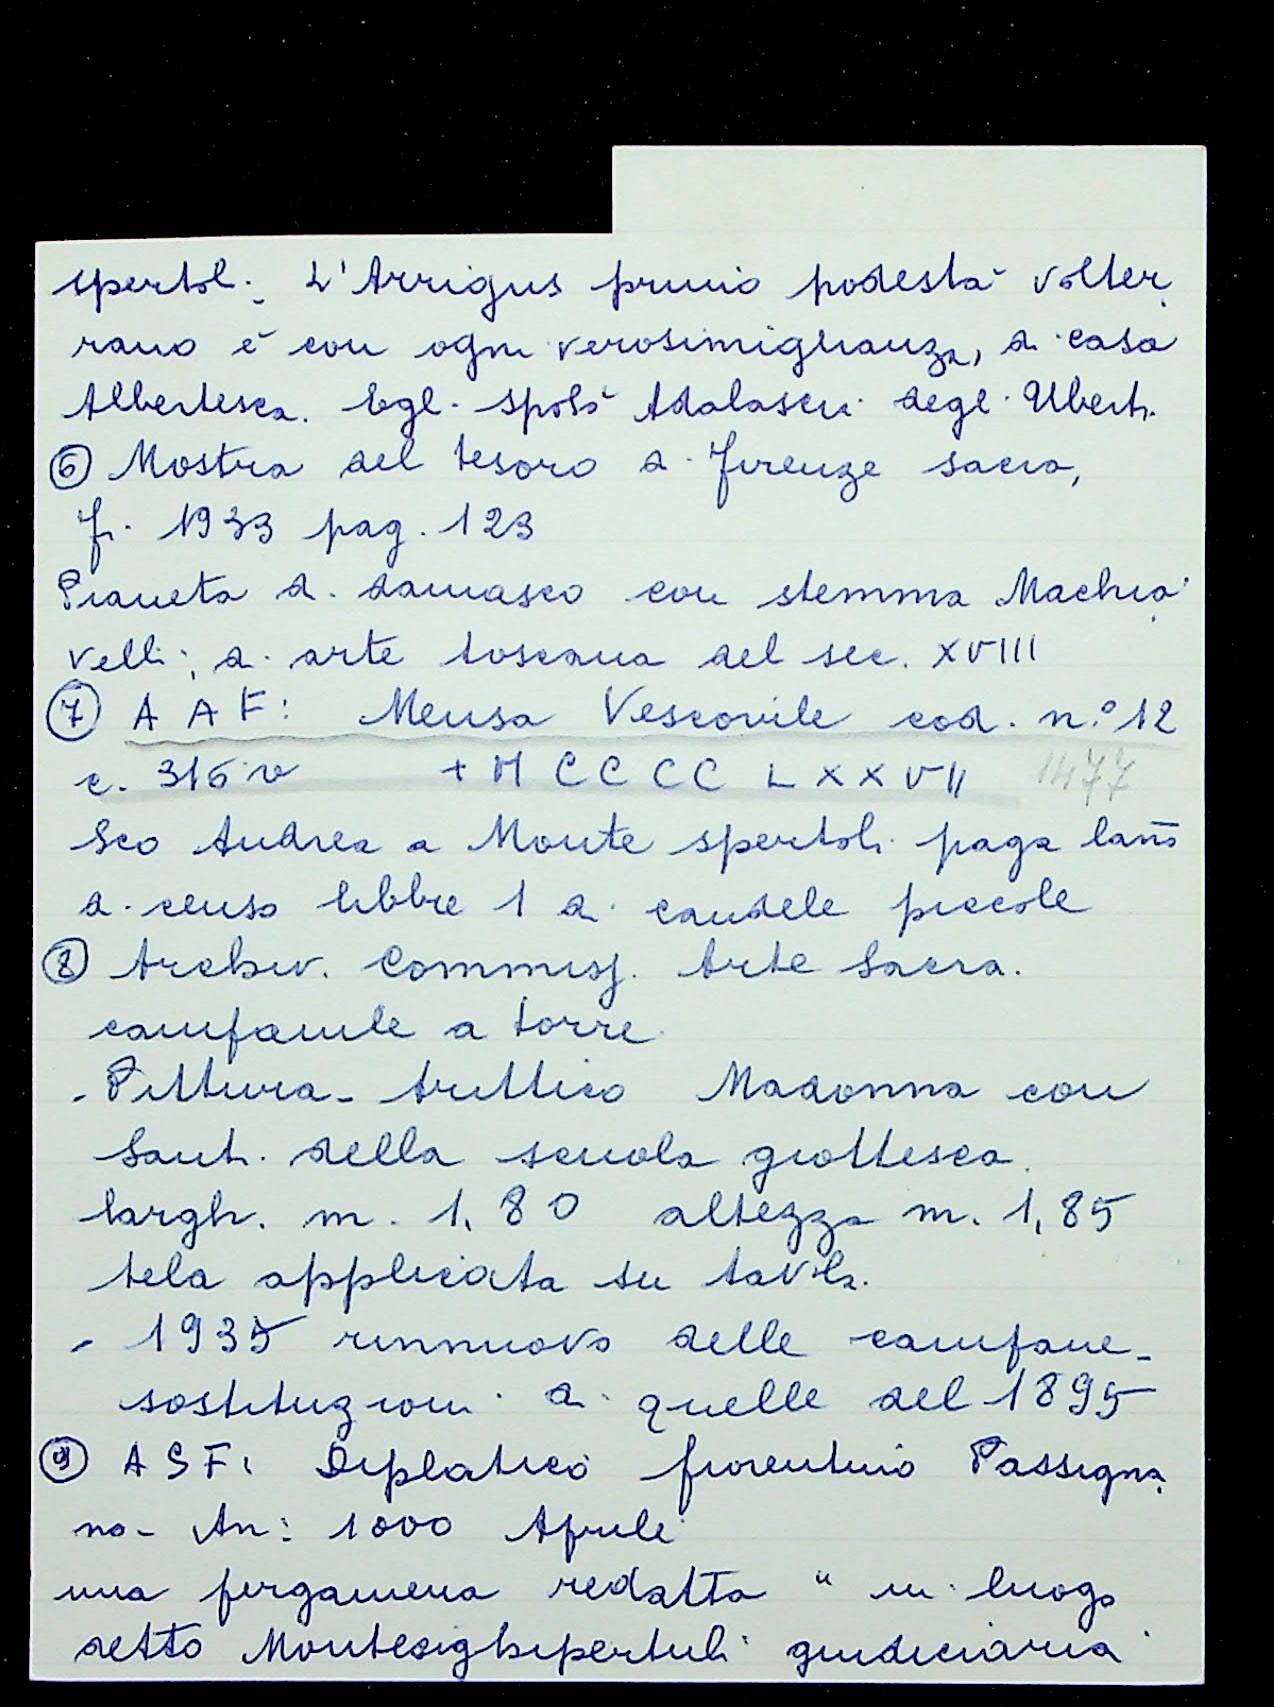 spertol:. L'Arrigus primo podestà volter
rano è con ogni verosimiglianza, di casa
Albertesca. Egli sposò Adalascia degli Uberti.
⑥ Mostra del tesoro di Firenze sacra,
Fi. 1933 pag. 123
Pianeta di damasco con stemma Machia
velli; di arte toscana del sec. XVIII
⑦ A A F: Mensa Vescovile cod. n.º 12
c. 316 v + M C C C C L X X V II 1477
Sco Andrea a Monte spertoli paga lano
di censo libbre 1 di candele piccole
⑧ Archiv. Commiss. Arte Sacra.
campanile a torre
- Pittura - trittico Madonna con
Santi della scuola giottesca.
largh. m. 1,80 altezza m. 1,85
tela applicata su tavola.
- 1935 rinnuovo delle campane -
sostituzioni di quelle del 1895
⑨ ASF: Diplatico fiorentino Passigna
no - An: 1000 Aprile
una pergamena redatta " in luogo
detto Montesighipertuli giudiciaria